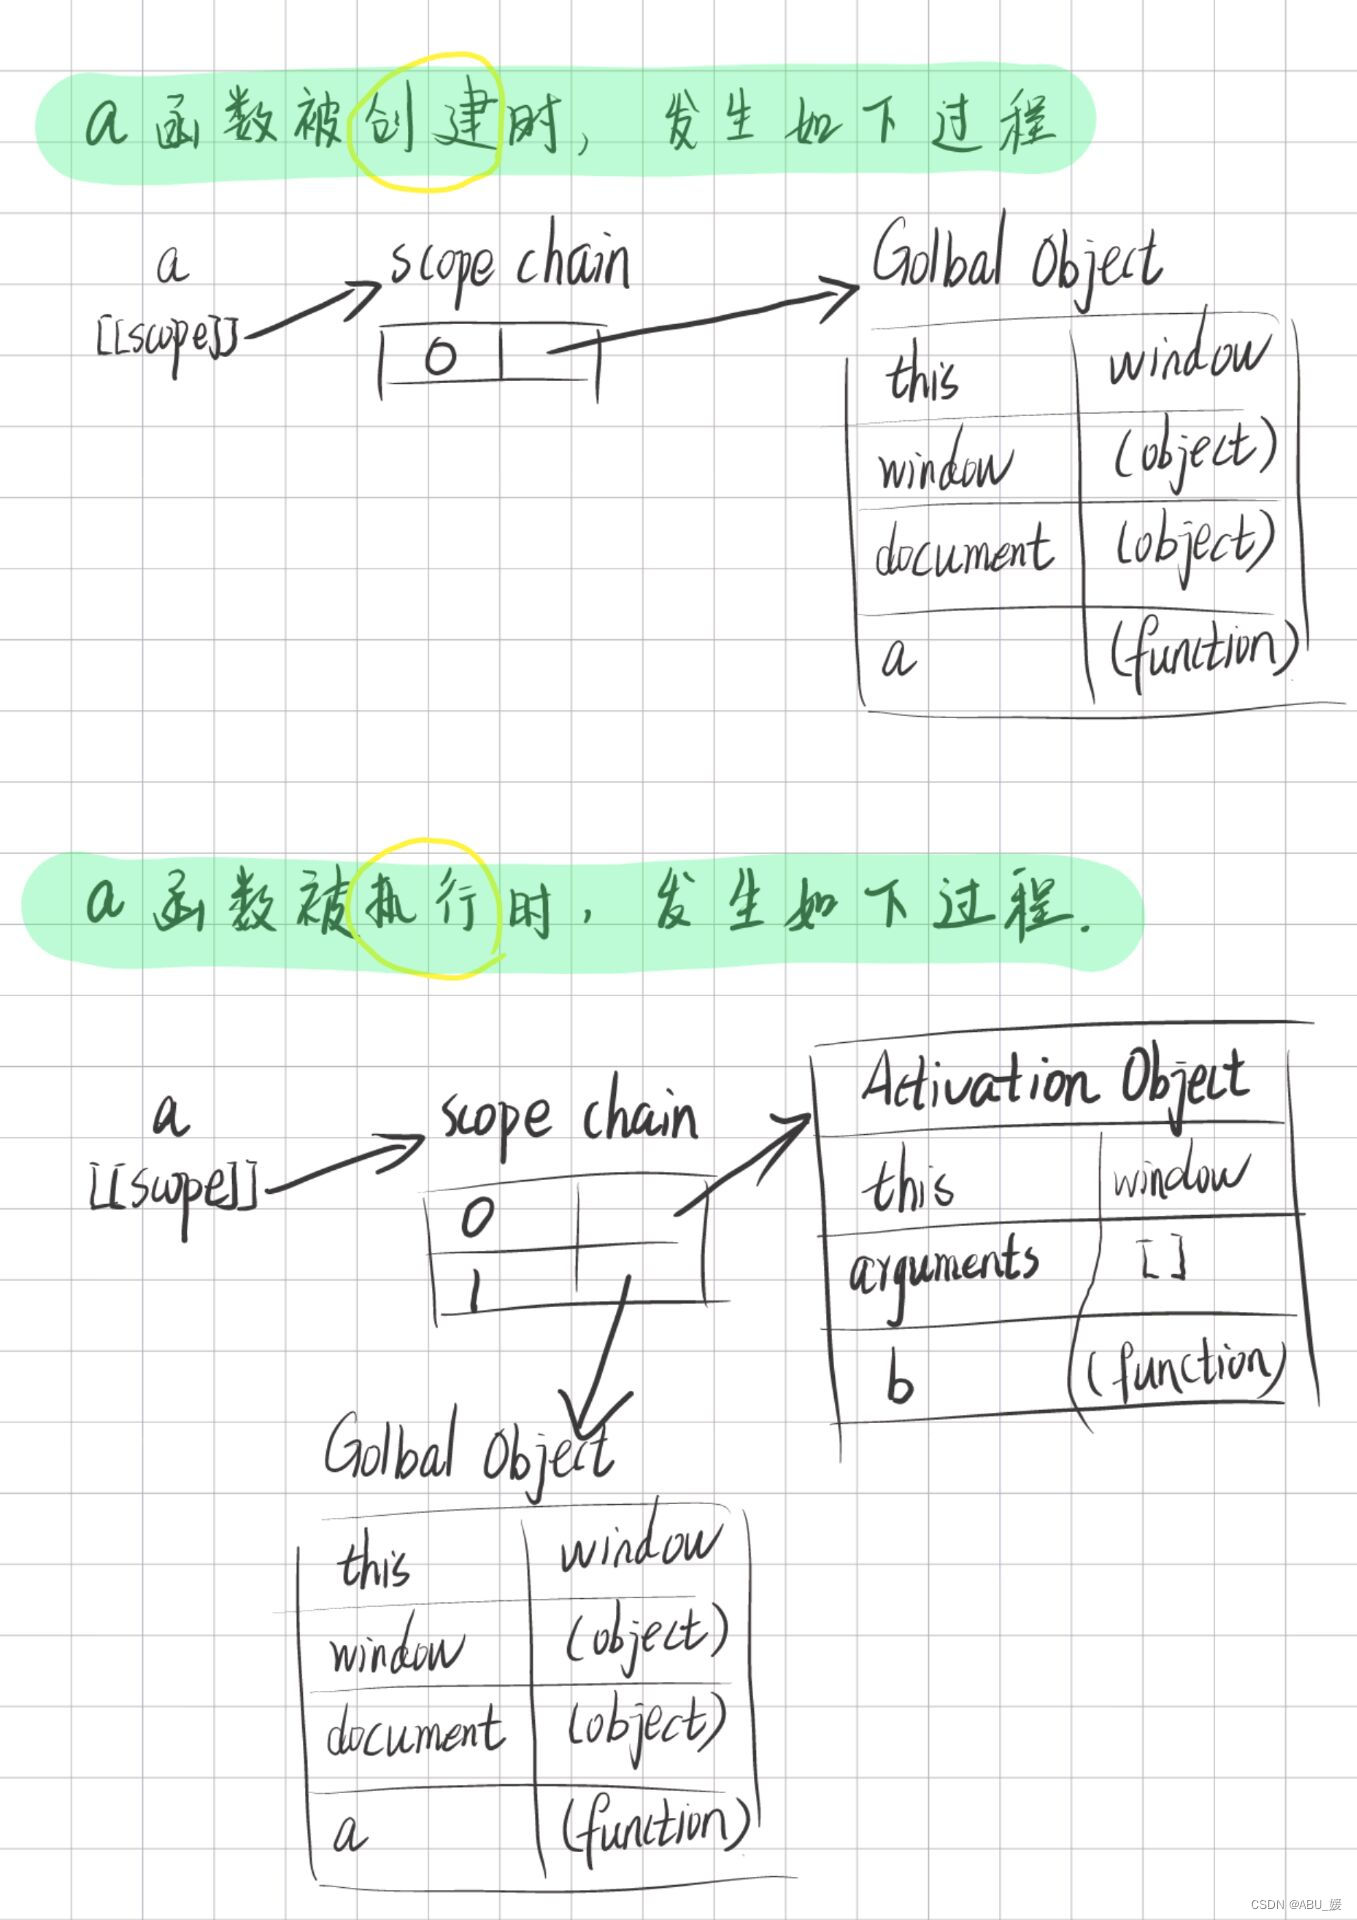 a函数被创建时,发生如下过程
a
[[scope]]
scope chain
0
Golbal Object
this window
window (object)
document (object)
a (function)
a函数被执行时,发生如下过程.
a
[[scope]]
scope chain
0
1
Activation Object
this window
arguments []
b (function)
Golbal Object
this window
window (object)
document (object)
a (function)
CSDN @ABU_媛